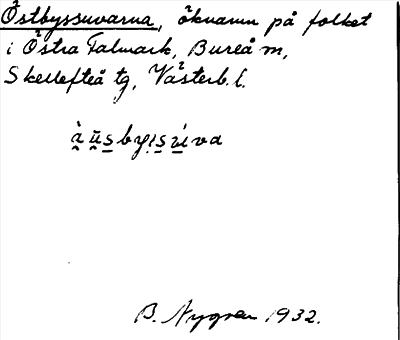 Östbyssuvarna, öknamn på folket
i Östra Falmark, Bureå sn,
Skellefteå tg, Västerb. l.
B. Nygren 1932.